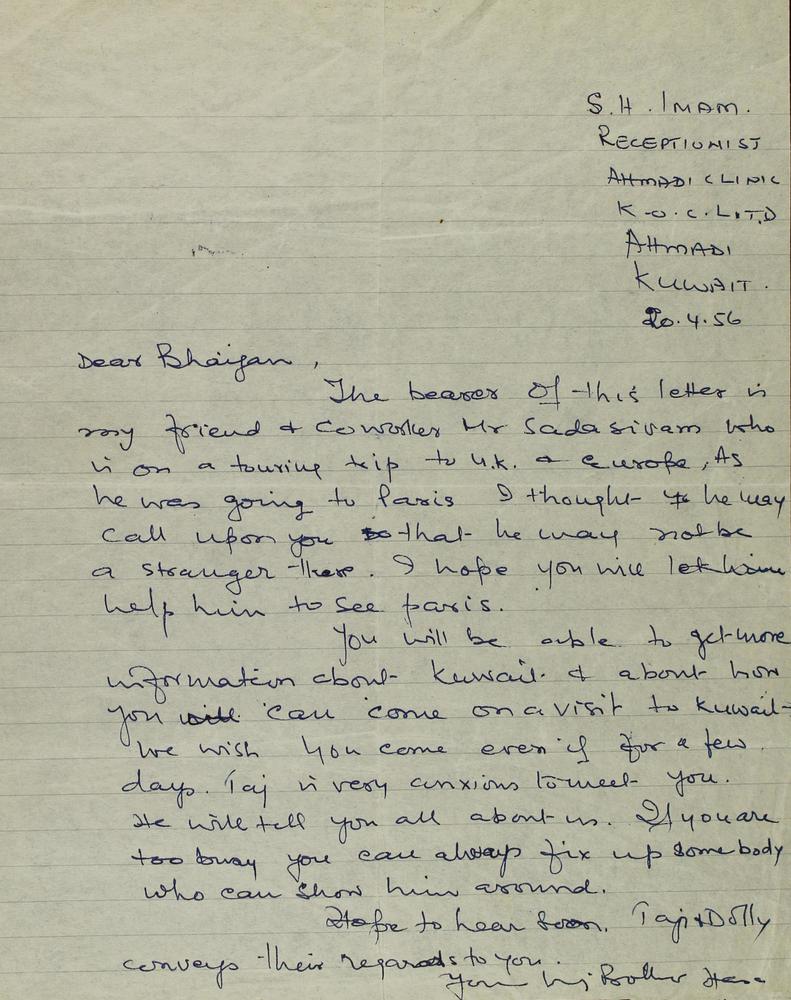 S.H. IMAM.
RECEPTIONIST
AHMADI CLINIC
K.O.C. LTD
AHMADI
KUWAIT.
20.4.56
Dear Bhaijan,
The bearer of this letter is
my friend & coworker Mr Sadasivam who
is on a touring trip to U.K. & Europe, As
he was going to Paris I thought he may
call upon you so that he may not be
a stranger there. I hope you will
help him to see paris.
You will be able to get more
information about Kuwait & about how
you will can come on a visit to Kuwait
We wish you come even if for a few
days. Taj is very anxious to meet you.
He will tell you all about us. If you are
too busy you can always fix up somebody
who can show him around.
Hope to hear soon. Taj & Dolly
conveys their regards to you.
Your Brother